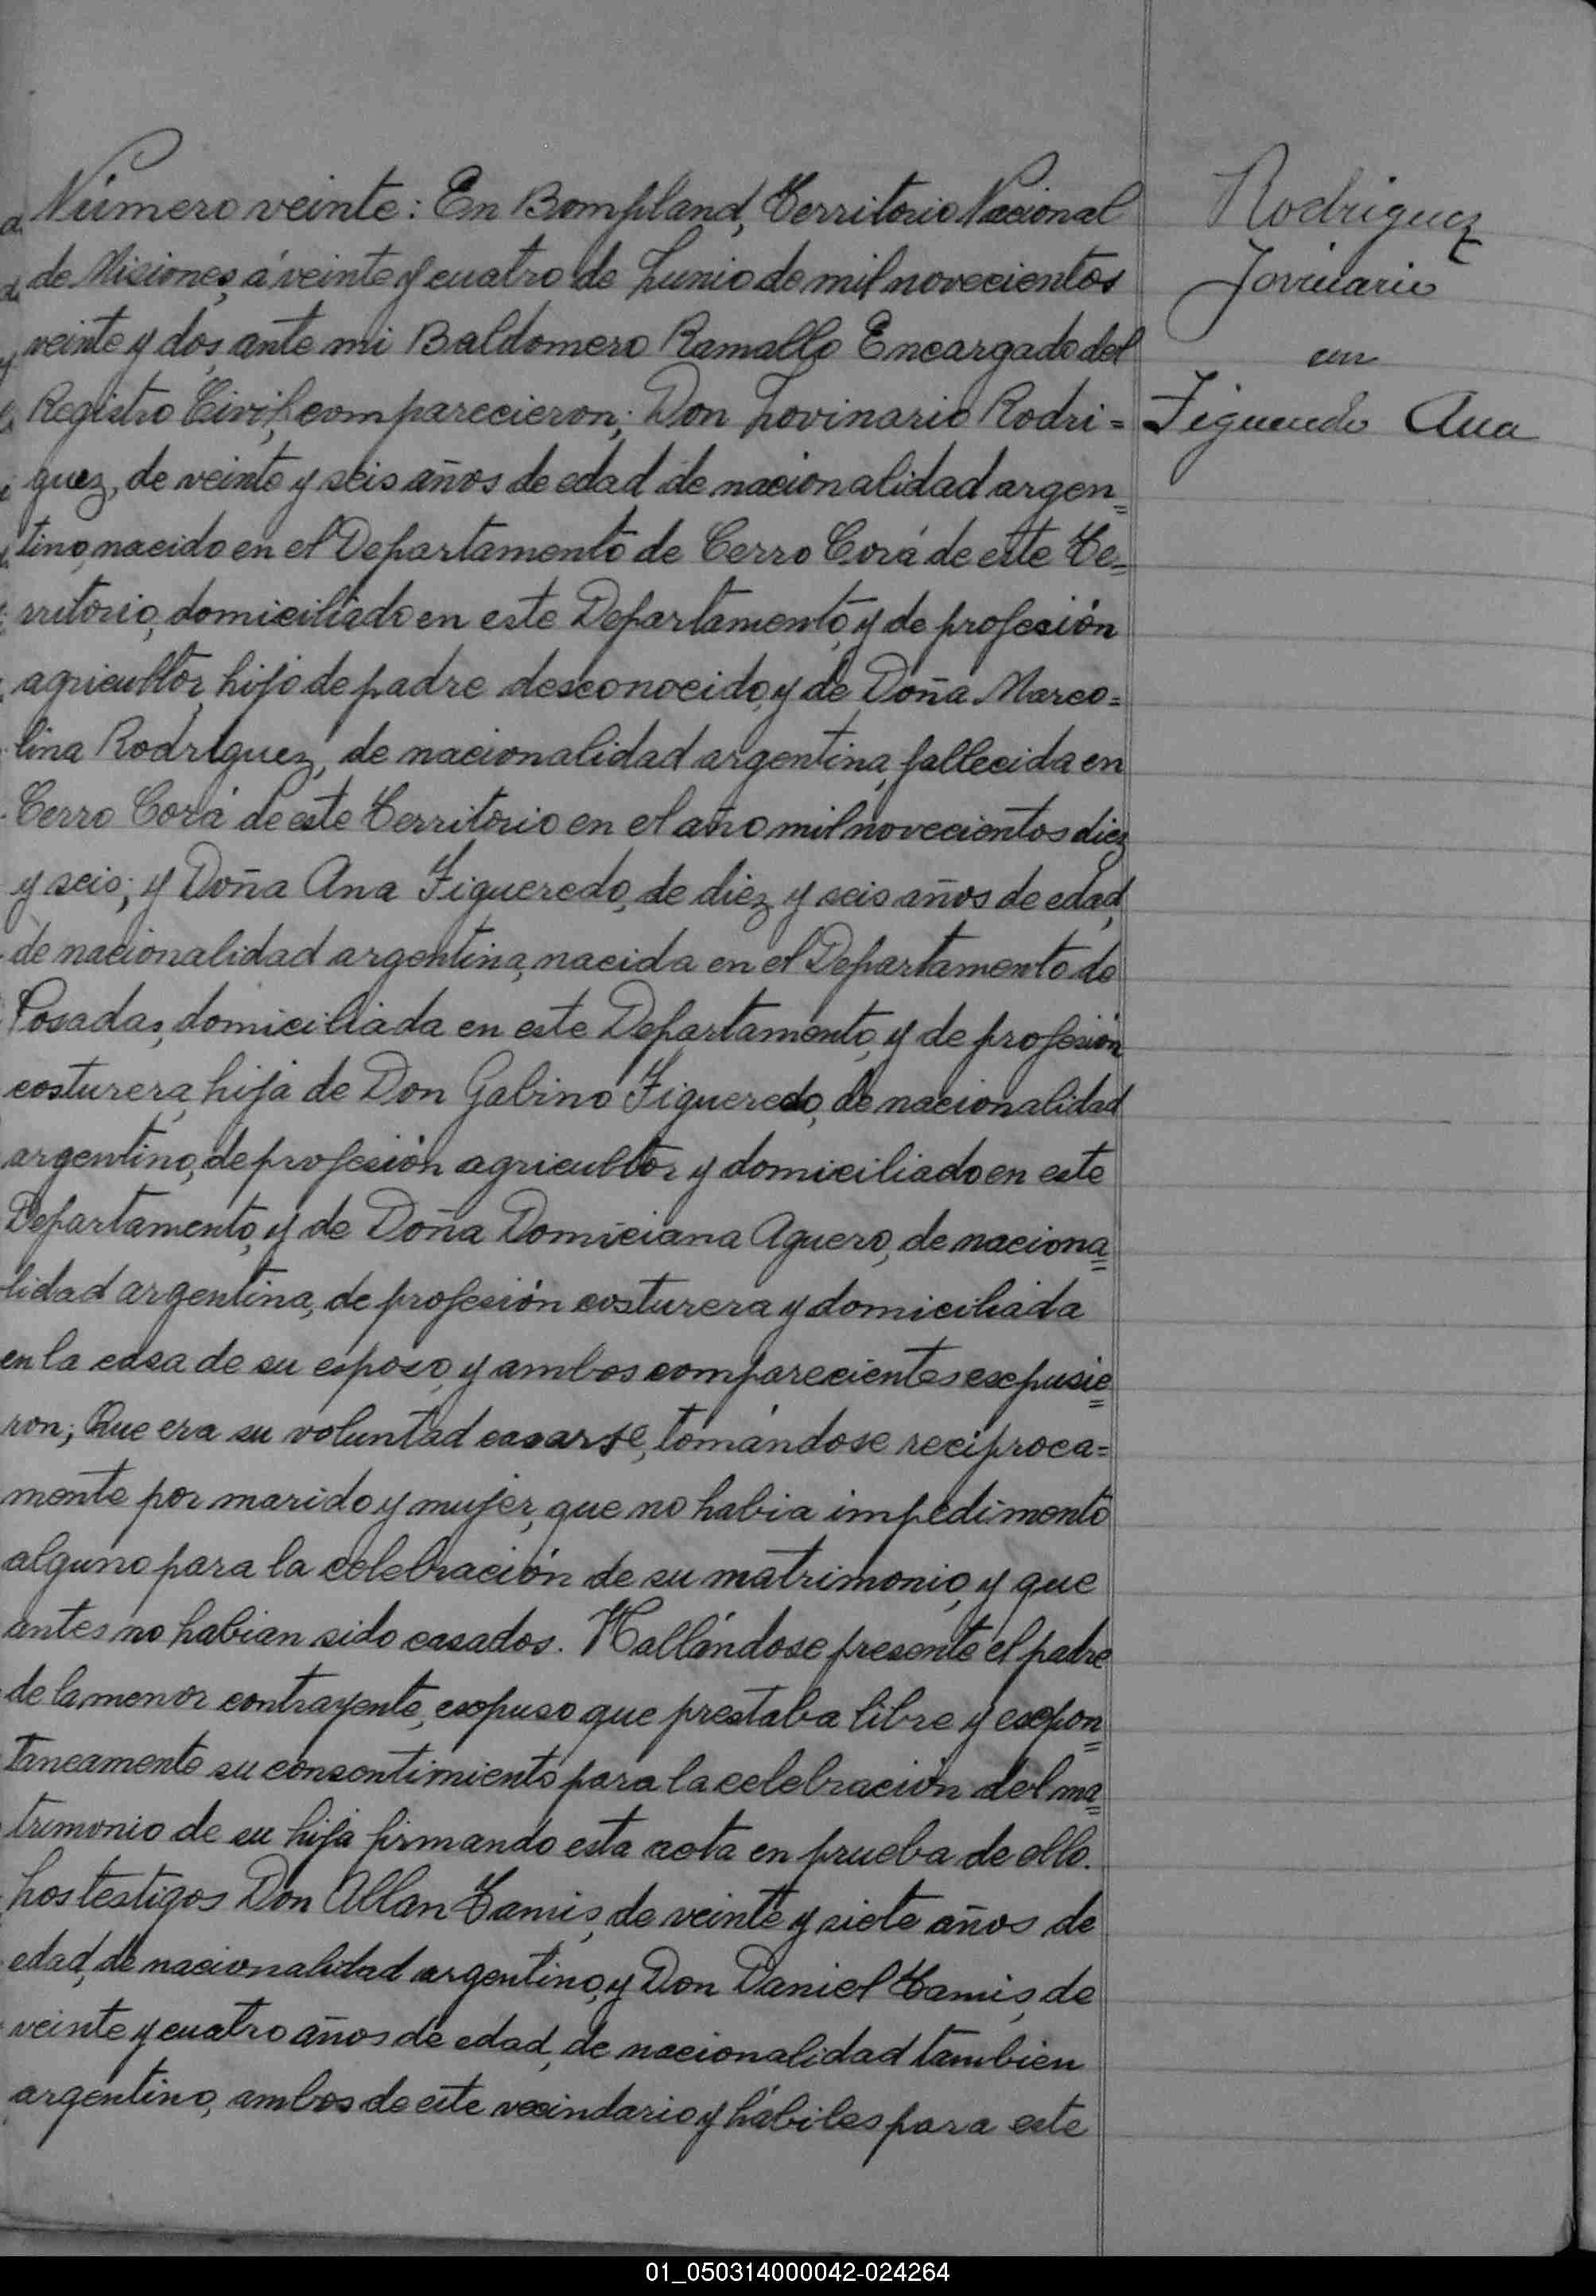 Número veinte: En Bompland, Territorio Nacional
de Misiones, á veinte y cuatro de Junio de mil novecientos
veinte y dos, ante mi Baldomero Ramallo Encargado del
Registro Civil, comparecieron; Don Jovinario Rodri=
guez, de veinte y seis años de edad de nacionalidad argen=
tino, nacido en el Departamento de Cerro Corá de este Te=
rritorio, domiciliado en este Departamento, y de profesión
agricultor, hijo de padre desconocido, y de Doña Marco=
lina Rodriguez, de nacionalidad argentina, fallecida en
Cerro Corá de este Territorio en el año mil novecientos diez
y seis; y Doña Ana Figueredo, de diez y seis años de edad,
de nacionalidad argentina, nacida en el Departamento de
Posadas, domiciliada en este Departamento, y de profesión
costurera, hija de Don Gabino Figueredo, de nacionalidad
argentino, de profesión agricultor y domiciliado en este
Departamento, y de Doña Domiciana Aguero, de naciona=
lidad argentina, de profesión costurera y domiciliada
en la casa de su esposo, y ambos comparecientes expusie=
ron; Que era su voluntad casarse, tomándose reciproca=
mente por marido y mujer, que no habia impedimento
alguno para la celebración de su matrimonio, y que
antes no habian sido casados. Hallándose presente el padre
de la menor contrayente, expuso que prestaba libre y expon=
taneamente su consentimiento para la celebración del ma=
trimonio de su hija firmando esta acta en prueba de ello.
Los testigos Don Allan Tamis, de veinte y siete años de
edad, de nacionalidad argentino, y Don Daniel Tamis, de
veinte y cuatro años de edad, de nacionalidad tambien
argentino, ambos de este vecindario y hábiles para este
Rodriguez
Jovinario
con
Figueredo Ana
01_050314000042-024264